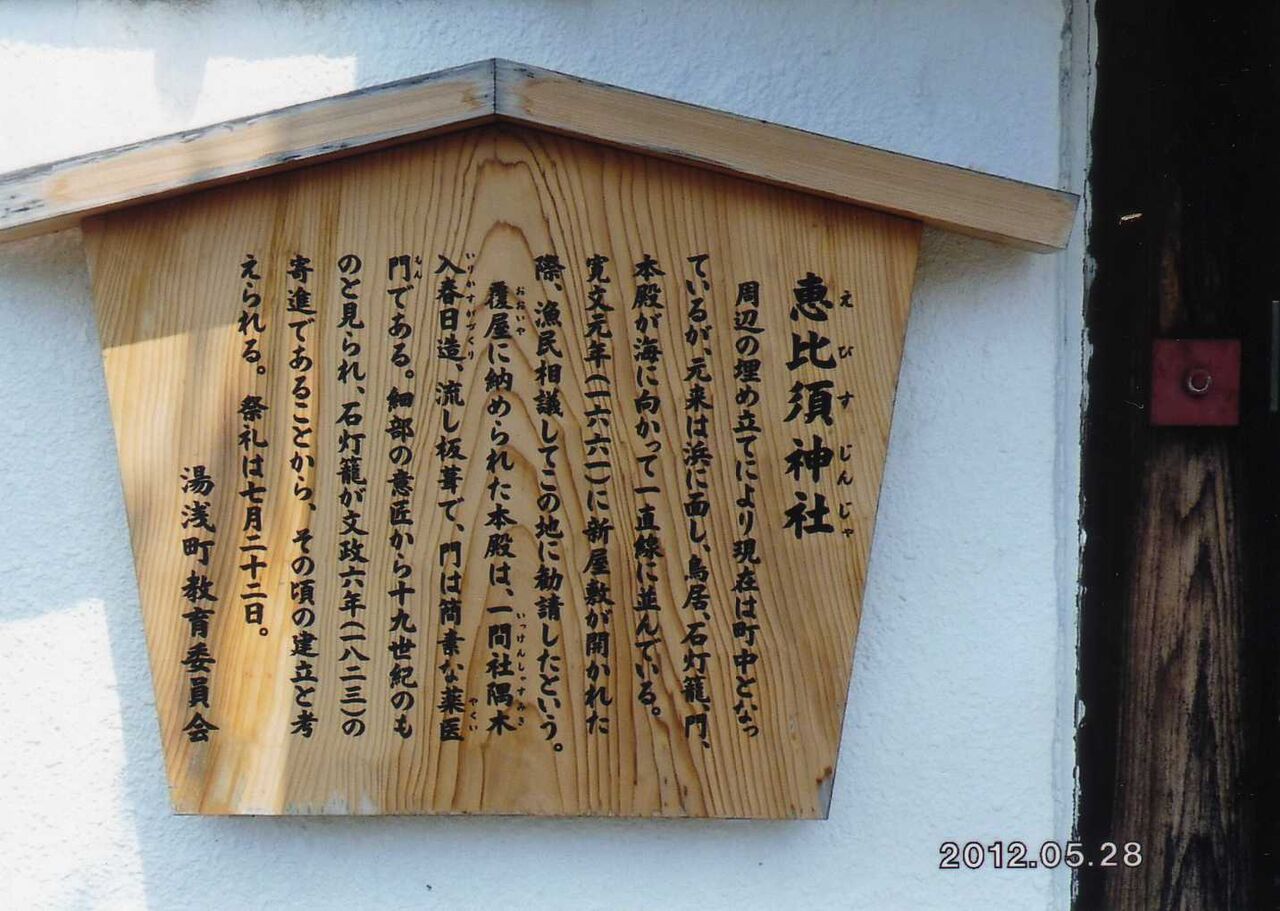 恵比須神社
えびすじんじゃ
周辺の埋め立てにより現在は町中となっ
ているが、元来は浜に面し、鳥居、石灯籠、門、
本殿が海に向かって一直線に並んでいる。
寛文元年(一六六一)に新屋敷が開かれた
際、漁民相議してこの地に勧請したという。
覆屋に納められた本殿は、一間社隅木
おおいや
いっけんしゃすみき
入春日造、流し板葺で、門は簡素な薬医
いりかすがづくり
やくい
門である。細部の意匠から十九世紀のも
もん
のと見られ、石灯籠が文政六年(一八二三)の
寄進であることから、その頃の建立と考
えられる。祭礼は七月二十二日。
湯浅町教育委員会
2012.05.28